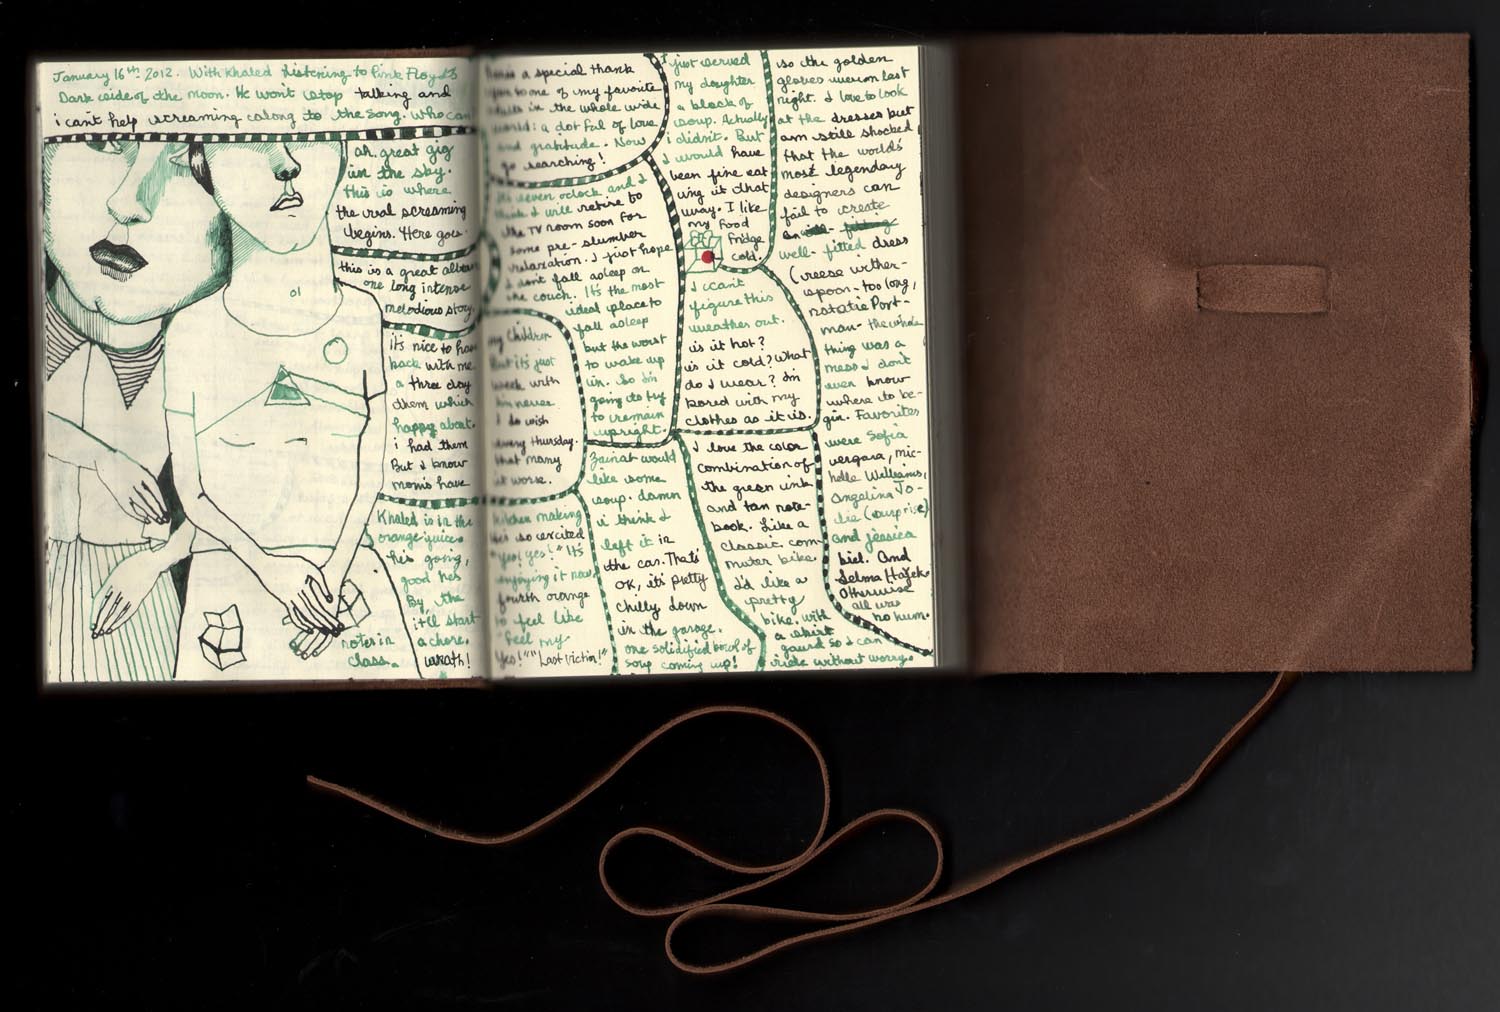 January 16th 2012. With Khaled listening to Pink Floyd's
Dark side of the moon. He won't stop talking and
i can't help screaming along to the song. Who can
ah. great gig
in the sky.
this is where
the real screaming
begins. Here goes.
this is a great album
one long intense
melodious story.
it's nice to have
back with me
a three day
them which
happy about.
i had them
But I know
moms have
Khaled is in the
orange juice.
he's going,
good he's
By the
it'll start
a chore.
wrath!
notes in
class.
a special thank
to one of my favorite
in the whole wide
world: a dot ful of love
and gratitude. Now
go searching!
seven oclock and I
think I will retire to
the TV room soon for
some pre-slumber
relaxation. I just hope
I don't fall asleep on
the couch. It's the most
ideal place to
fall asleep
but the worst
to wake up
in. So I'm
going to try
to remain
upright.
my children
But it's just
week with
him never
I do wish
every thursday.
that many
it worse.
kitchen making
He's so excited
"yes! yes!" It's
enjoying it now,
fourth orange
to feel like
"Feel my
Yes!" "Last victim!"
Zainat would
like some
soup. damn
i think I
left it in
the car. That's
OK, it's pretty
chilly down
in the garage.
one solidified bowl of
soup coming up!
I just served
my daughter
a block of
soup. Actually
i didn't. But
I would have
been fine eat
ing it that
way. I like
my food
fridge
cold.
I can't
figure this
weather out.
is it hot?
is it cold? What
do I wear? I'm
bored with my
clothes as it is.
I love the color
combination of
the green ink
and tan note-
book. Like a
classic com
muter bike.
I'd like a
pretty
bike, with
a skirt
gaurd so I can
ride without worry.
so the golden
gloves were on last
night. I love to look
at the dresses but
am still shocked
that the world's
most legendary
designers can
fail to create
well-fitted dress
(reese wither-
spoon - too long,
natalie Port-
man - the whole
thing was a
mess I don't
even know
where to be-
gin. Favorites
were Sofia
vergara, mic-
helle Williams,
Angelina Jo-
lie (surprise)
and jessica
biel. And
Selma Hayek.
Otherwise
all was
ho hum.